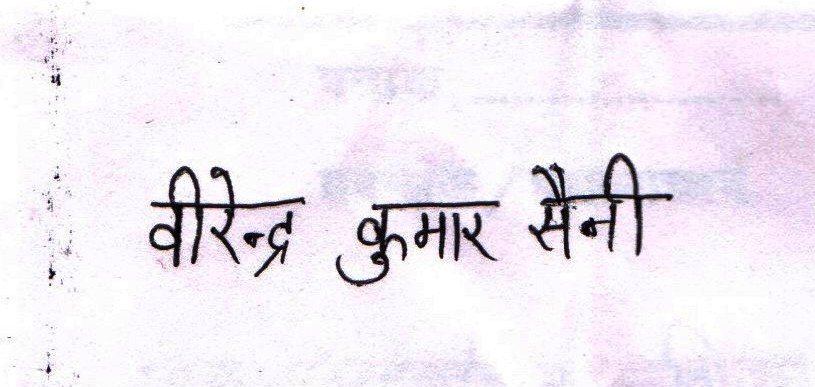 वीरेन्द्र कुमार सैनी